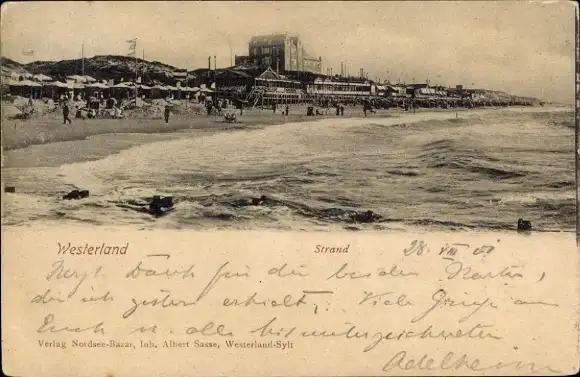 Westerland
Strand
28. VIII 01
Herzl. Dank für die beiden Karten,
die ich gestern erhielt. Viele Grüße an
Euch u. alle bis
Verlag Nordsee-Bazar, Inh. Albert Sasse, Westerland-Sylt
Adelheim